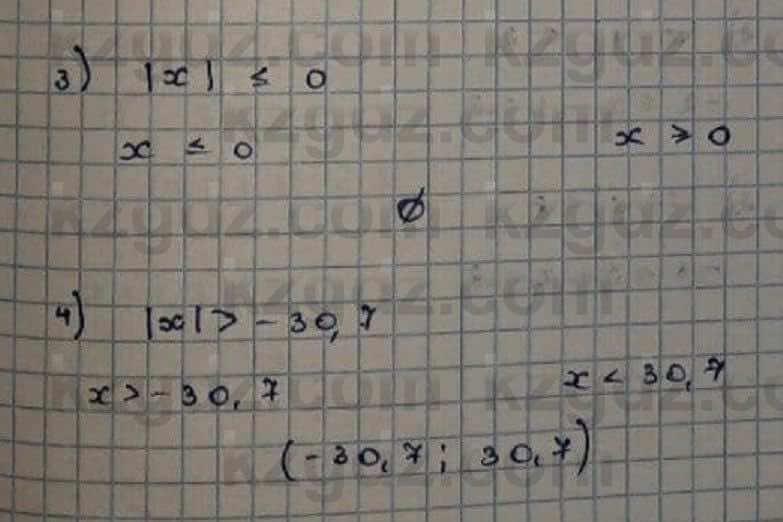 3) |x| ≤ 0
x ≤ 0 x ≥ 0
∅
4) |x| > -30,7
x > -30,7 x < 30,7
(-30,7; 30,7)
kzguz.com